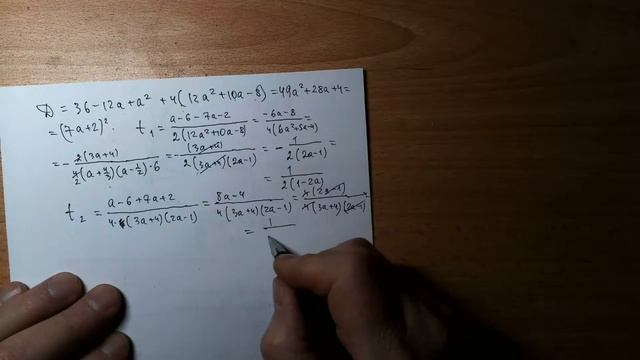 D = 36 - 12a + a² + 4(12a² + 10a - 8) = 49a² + 28a + 4 =
= (7a+2)². t₁ = (a - 6 - 7a - 2)/(2(12a² + 10a - 8)) = (-6a - 8)/(4(6a² + 5a - 4)) =
= - 2(3a+4)/(4(a + 4/3)(a - 1/2)·6) = - (3a+4)/(2(3a+4)(2a-1)) = - 1/(2(2a-1)) =
= 1/(2(1-2a))
t₂ = (a - 6 + 7a + 2)/(4·(3a+4)(2a-1)) = (8a - 4)/(4(3a+4)(2a-1)) = 4(2a-1)/(4(3a+4)(2a-1)) =
= 1/